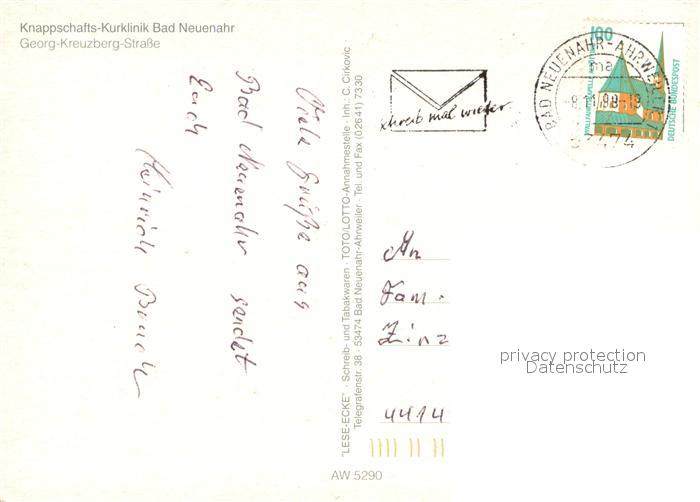 Knappschafts-Kurklinik Bad Neuenahr
Georg-Kreuzberg-Straße
Viele Grüße aus
Bad Neuenahr sendet
Euch
Heinrich
"LESE-ECKE" · Schreib- und Tabakwaren · TOTO/LOTTO-Annahmestelle · Inh.: C. Cirkovic ·
Telegrafenstr. 38 · 53474 Bad Neuenahr-Ahrweiler · Tel. und Fax (02641) 7330
AW 5290
schreib mal wieder
BAD NEUENAHR-AHRWEILER 1
ma
53474
100
DEUTSCHE BUNDESPOST
An
Fam.
Zinz
4414
privacy protection
Datenschutz